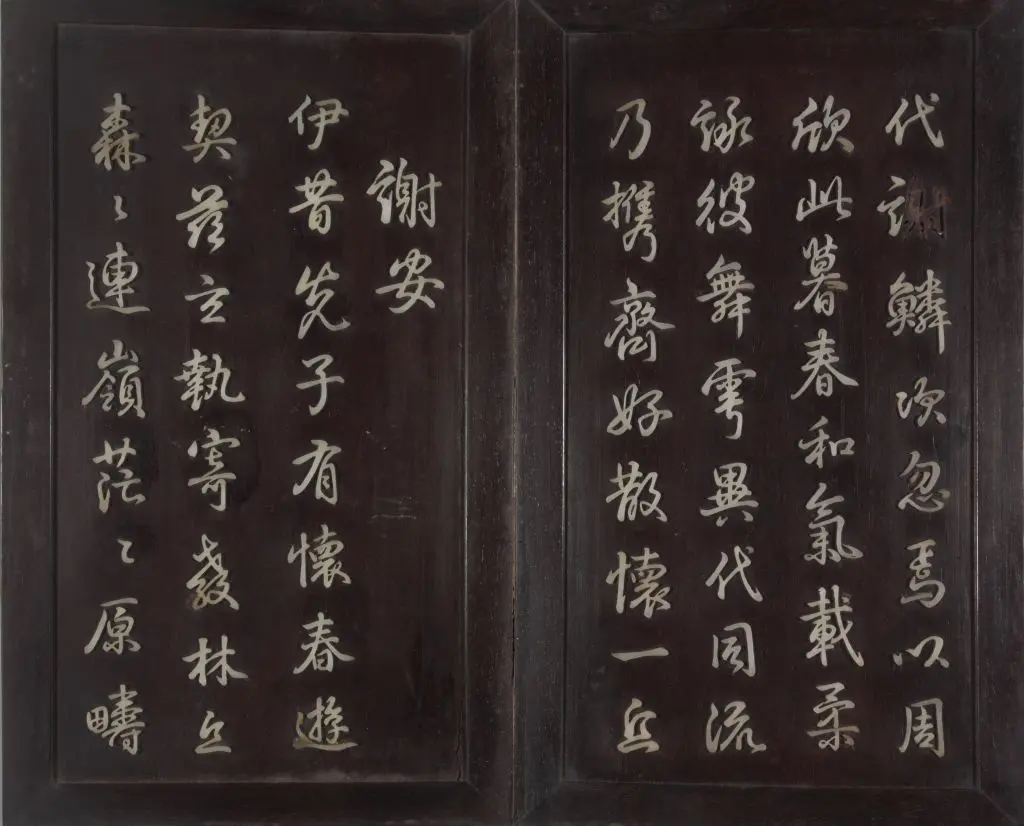 代謝鱗次忽焉以周
欣此暮春和氣載柔
詠彼舞雩異代同流
乃携齊好散懷一丘
謝安
伊昔先子有懷春遊
契茲言執寄傲林丘
森〻連嶺茫〻原疇